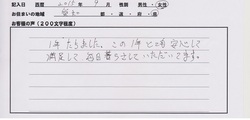 記入日 西暦 2018年 4月 男性・女性
お住まいの地域 愛知 都・道・府・県
お客様の声(200文字程度)
1年たちました。この1年とても安心して
満足して毎日暮らさせていただいてます。